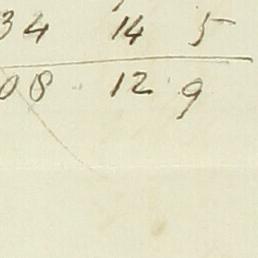 34 14 5
08 12 9